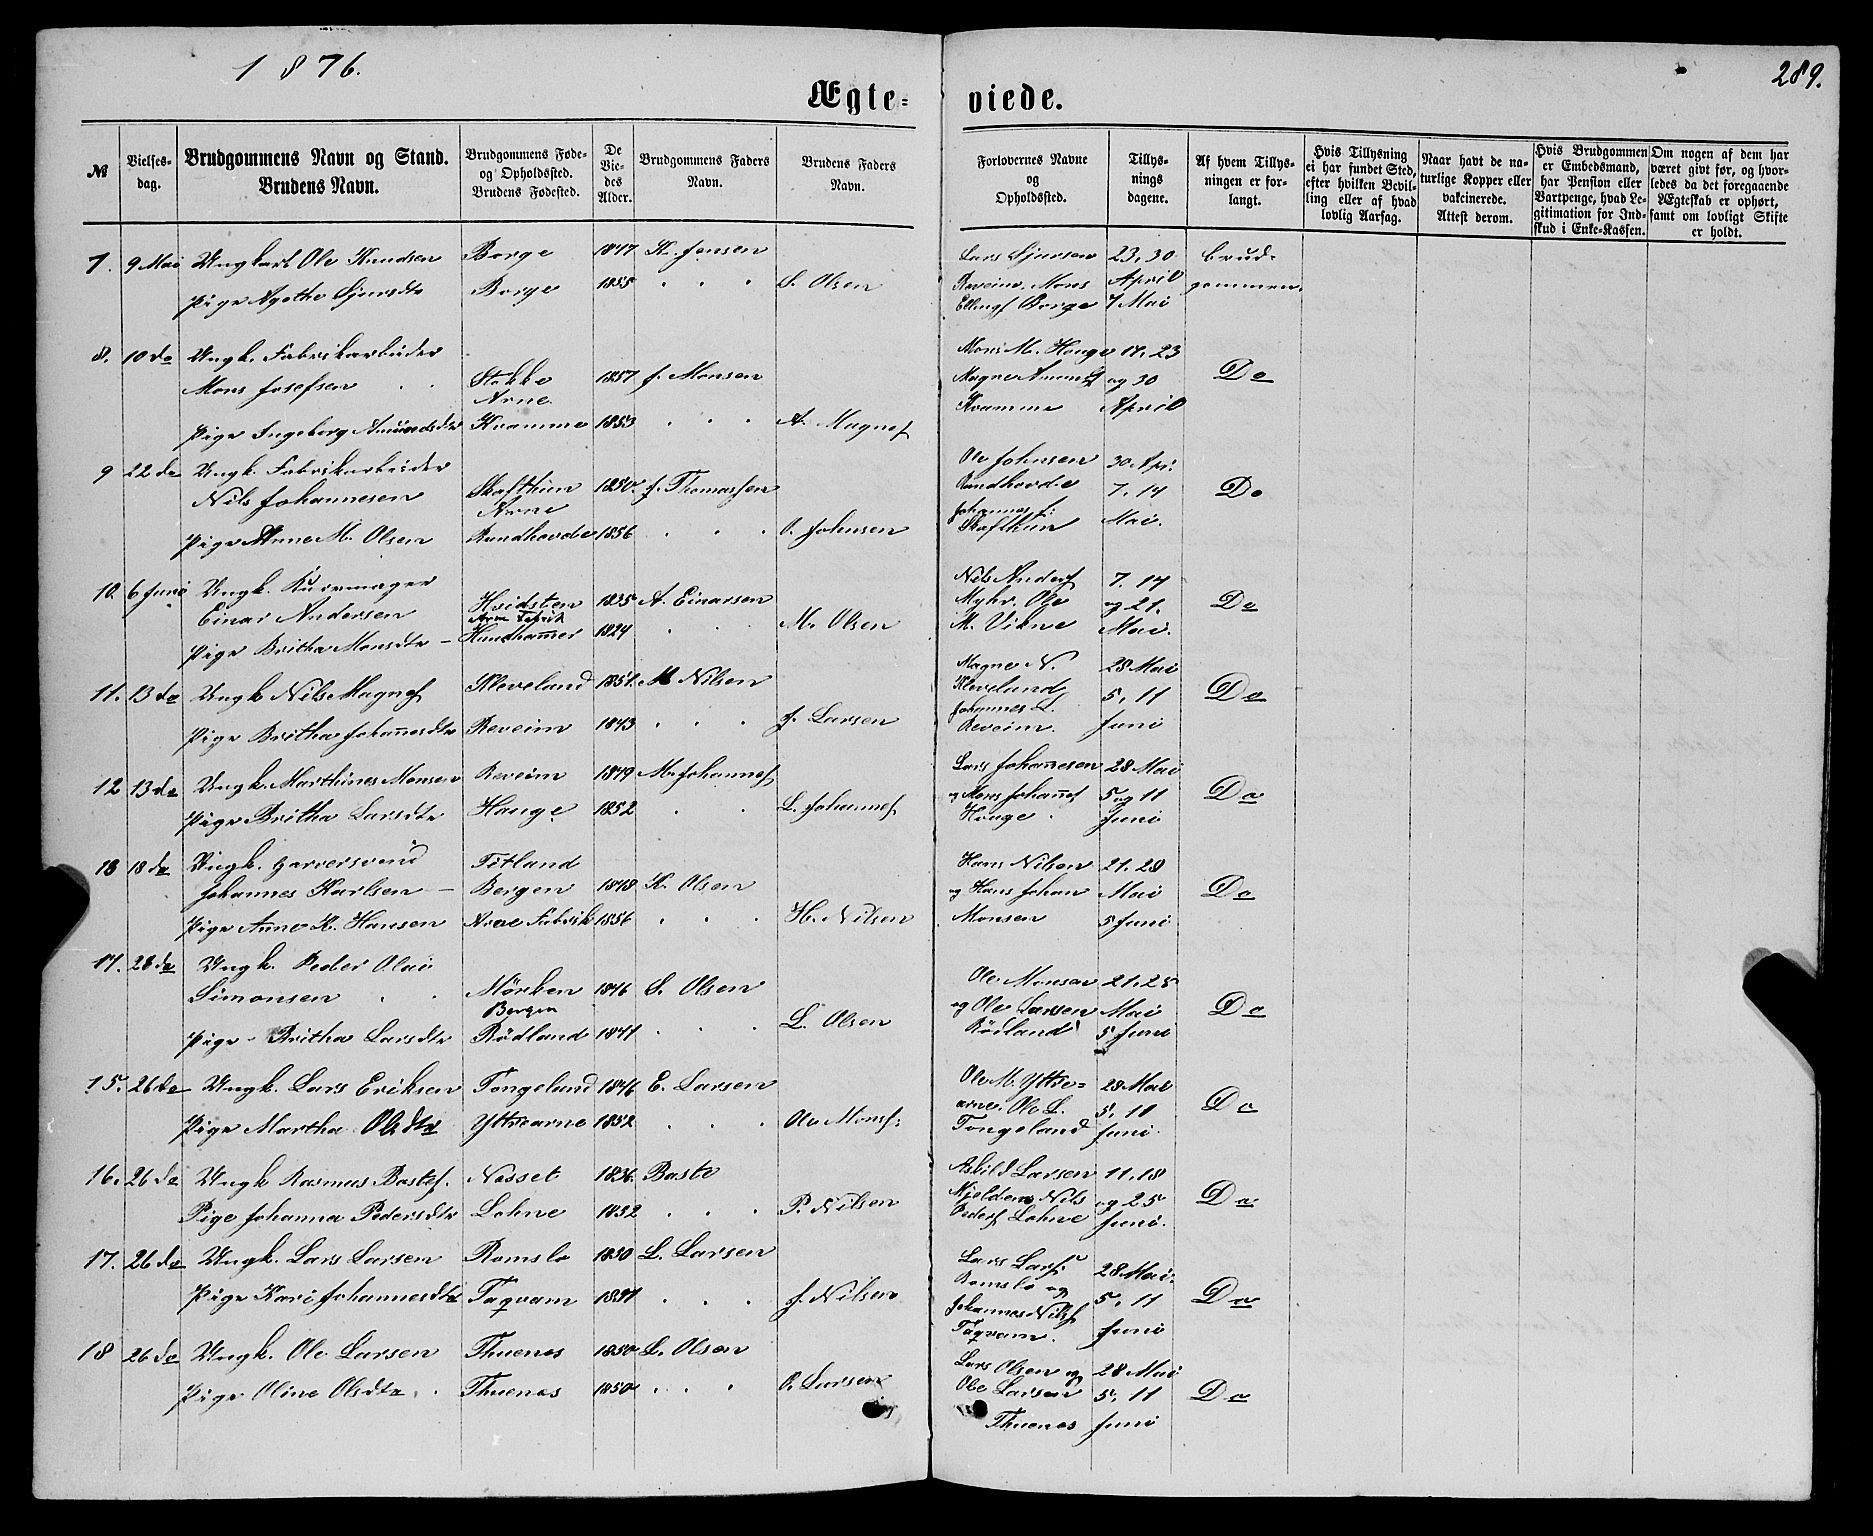 1876.
289.
Ægte= viede.
№
Vielses-
dag.
Brudgommens Navn og Stand.
Brudens Navn.
Brudgommens Føde-
og Opholdssted.
Brudens Fødested.
De
Vie-
des
Alder.
Brudgommens Faders
Navn.
Brudens Faders
Navn.
Forlovernes Navne
og
Opholdssted.
Tillys-
nings
dagene.
Af hvem Tillys-
ningen er for-
langt.
Hvis Tillysning
ei har fundet Sted,
efter hvilken Bevil-
ling eller af hvad
lovlig Aarsag.
Naar havt de na-
turlige Kopper eller
vakcinerede.
Attest derom.
Hvis Brudgommen
er Embedsmand,
har Pension eller
Vartpenge, hvad Le-
gitimation for Ind-
skud i Enke-Kassen.
Om nogen af dem har
været givt før, og hvor-
ledes da det foregaaende
Ægteskab er ophørt,
samt om lovligt Skifte
er holdt.
7. 9 Mai Ungkarl Ole Knudsen Borge 1847 K. Jensen
Pige Agathe Sjursdtr Borge 1855 S. Olsen
Lars Sjursen 23, 30 Brud-
Reveim, Mons April gommen.
Ellingf Borge 7 Mai
8. 10 do Ungk. Fabrikarbeider
Mons Josefsen Stokke 1857 J. Monsen
Arne.
Pige Ingeborg Amundsdtr Kvamme 1853 A. Magnef
Mons M. Hauge 17, 23
Magne Amundf og 30 Do
Kvamme April
9 22 do Ungk. Fabrikarbeider
Nils Johannesen Skafthun 1850. J. Thomassen
Arne
Pige Anne M. Olsen Randhovde 1856 O. Johnsen
Ole Johnsen 30 Apr.
Randhovde 7, 14 Do
Johannes
Skafthun Mai.
10. 6 Juni Ungk.
Einar Andersen Hvidsten 1835 A. Einarsen
Arne Fabrik
Pige Britha Monsdtr Hundhammer 1824 M. Olsen
Nils Andersf 7, 14
Myhr, Ole og 21. Do
M. Vikne Mai.
11. 13 do Ungk Nils Magnef Kleveland 1851. M Nilsen
Pige Britha Johannesdtr Reveim 1843 J. Larsen
Magne N. 28 Mai
Kleveland 5, 11 Do
Johannes L.
Reveim. Juni
12 13 do Ungk. Marthines Monsen Reveim 1849 M. Johannef
Pige Britha Larsdtr Hauge 1852 L. Johannef
Lars Johanesen 28 Mai
og Mons Johannf 5 og 11 Do
Houge. Juni
13 18 do Ungk. Garversvend Titland
Johannes Karlsen Bergen 1848 K. Olsen
Pige Anne K. Hansen Arne Fabrik 1856 H. Nilsen
Hans Nilsen 21, 28
og Hans Johan Mai Do
Monsen 5 Juni
14. 28 do Ungk. Peder Olai
Simonsen Mörken 1846 S. Olsen
Bergen
Pige Britha Larsdtr Rödland 1841 L. Olsen
Ole Monsen 21, 25
og Ole Larsen Mai Do
Rödland 5 Juni
15. 26 do Ungk. Lars Eriksen Tongeland 1846 E. Larsen
Pige Martha Olsdtr Yttrearne 1852 Ole Monsf.
Ole M. Yttre= 28 Mai
arne, Ole L. 5, 11 Do
Tongeland Juni.
16. 26 do Ungk Rasmus Bastef. Nesset 1836. Baste
Pige Johanna Pedersdtr Lohne 1852 P. Nilsen
Askild Larsen 11, 18
Mjelden, Nils og 25 Do
Pedersf Lohne Juni.
17. 26 do Ungk. Lars Larsen Romslo 1850 L. Larsen
Pige Kari Johannesdtr Taqvam 1851 J. Nilsen
Lars Larsf. 28 Mai.
Romslo og 5, 11 Do
Johannes Nilsf
Taqvam. Juni
18 26 do Ungk. Ole Larsen Thuenes 1850 L. Olsen
Pige Oline Olsdtr Thuenes 1850 O. Larsen
Lars Olsen og 28 Mai
Ole Larsen 5, 11 Do
Thuenes Juni